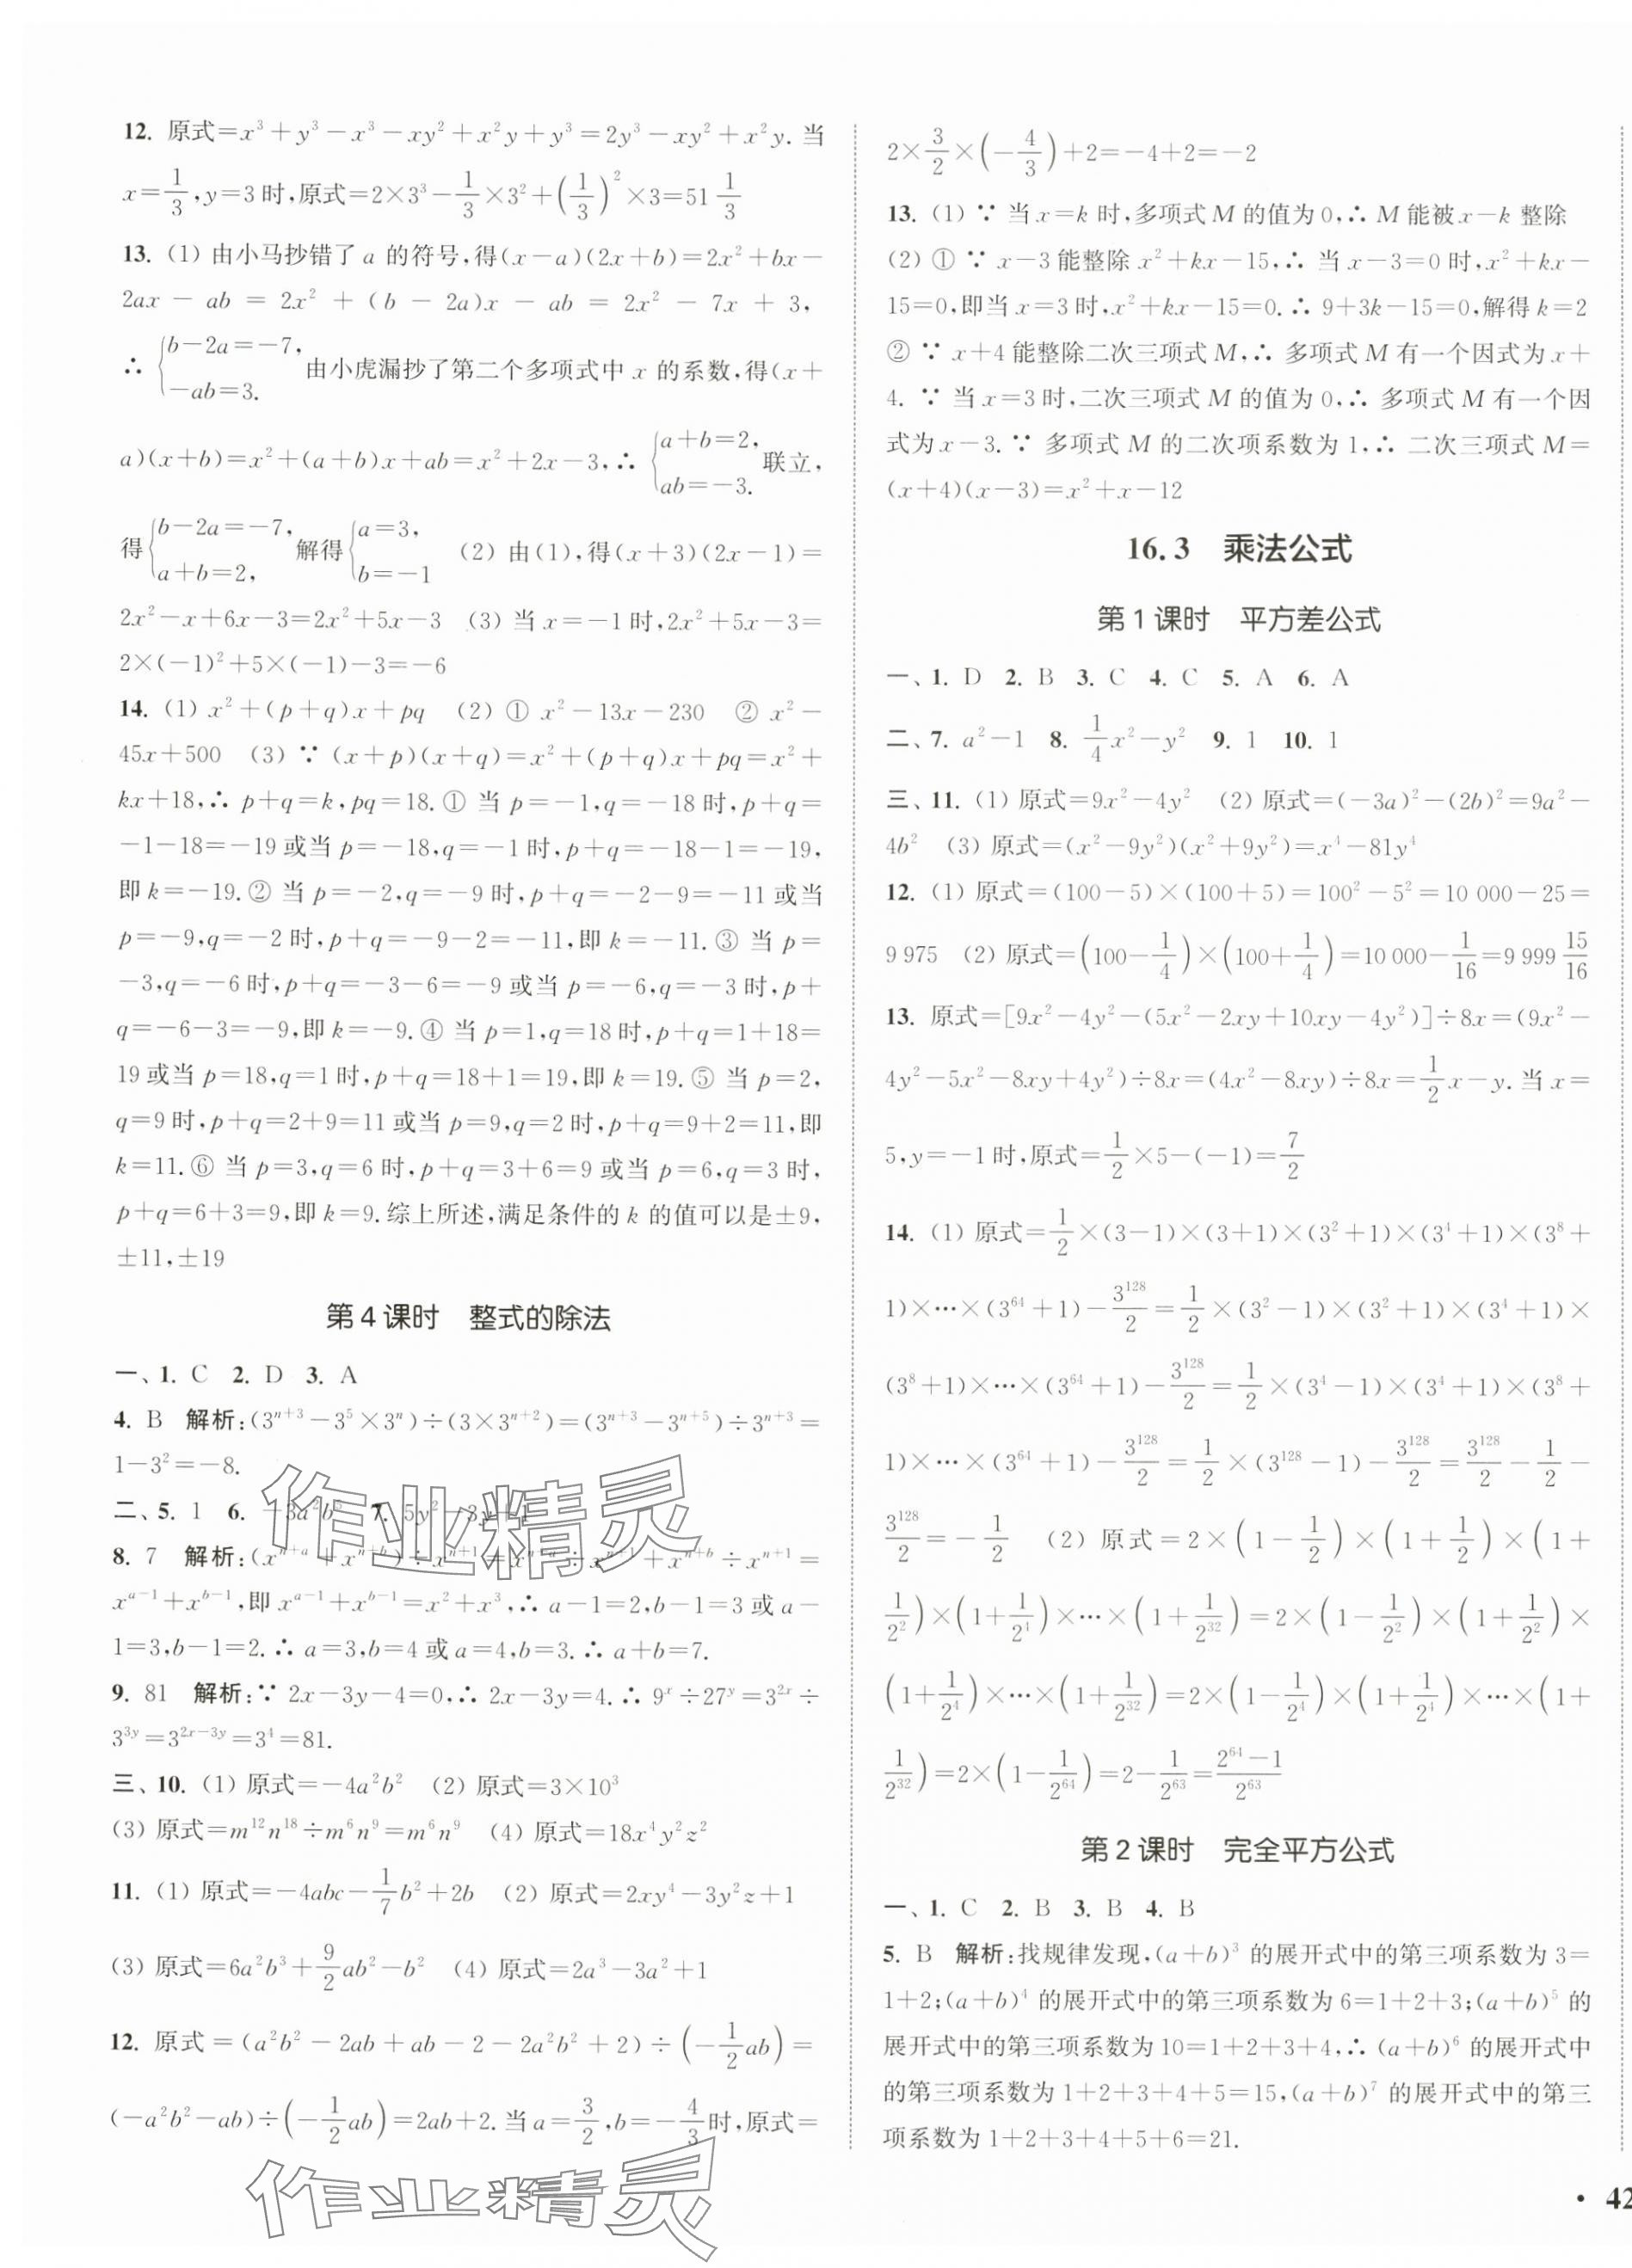 12. 原式=x³+y³-x³-xy²+x²y+y³=2y³-xy²+x²y. 当
x=1/3,y=3时,原式=2×3³-1/3×3²+(1/3)²×3=51 1/3
13. (1) 由小马抄错了 a 的符号,得(x-a)(2x+b)=2x²+bx-
2ax-ab=2x²+(b-2a)x-ab=2x²-7x+3,
∴ {b-2a=-7, -ab=3. 由小虎漏抄了第二个多项式中 x 的系数,得(x+
a)(x+b)=x²+(a+b)x+ab=x²+2x-3,∴ {a+b=2, ab=-3. 联立,
得{b-2a=-7, a+b=2, 解得{a=3, b=-1 (2) 由(1),得(x+3)(2x-1)=
2x²-x+6x-3=2x²+5x-3 (3) 当 x=-1时,2x²+5x-3=
2×(-1)²+5×(-1)-3=-6
14. (1) x²+(p+q)x+pq (2) ① x²-13x-230 ② x²-
45x+500 (3) ∵ (x+p)(x+q)=x²+(p+q)x+pq=x²+
kx+18,∴ p+q=k,pq=18.① 当 p=-1,q=-18时,p+q=
-1-18=-19或当 p=-18,q=-1时,p+q=-18-1=-19,
即 k=-19.② 当 p=-2,q=-9时,p+q=-2-9=-11或当
p=-9,q=-2时,p+q=-9-2=-11,即 k=-11.③ 当 p=
-3,q=-6时,p+q=-3-6=-9或当 p=-6,q=-3时,p+
q=-6-3=-9,即 k=-9.④ 当 p=1,q=18时,p+q=1+18=
19或当 p=18,q=1时,p+q=18+1=19,即 k=19.⑤ 当 p=2,
q=9时,p+q=2+9=11或当 p=9,q=2时,p+q=9+2=11,即
k=11.⑥ 当 p=3,q=6时,p+q=3+6=9或当 p=6,q=3时,
p+q=6+3=9,即 k=9.综上所述,满足条件的 k 的值可以是±9,
±11,±19
第4课时 整式的除法
一、1. C 2. D 3. A
4. B 解析:(3ⁿ⁺³-3⁵×3ⁿ)÷(3×3ⁿ⁺²)=(3ⁿ⁺³-3ⁿ⁺⁵)÷3ⁿ⁺³=
1-3²=-8.
二、5. 1 6. 7.
8. 7 解析:(x^(n+a)+x^(n+b))÷x^(n+1)=x^(n+a)÷x^(n+1)+x^(n+b)÷x^(n+1)=
x^(a-1)+x^(b-1),即 x^(a-1)+x^(b-1)=x²+x³,∴ a-1=2,b-1=3或 a-
1=3,b-1=2.∴ a=3,b=4或 a=4,b=3.∴ a+b=7.
9. 81 解析:∵ 2x-3y-4=0,∴ 2x-3y=4.∴ 9^x÷27^y=3^(2x)÷
3^(3y)=3^(2x-3y)=3⁴=81.
三、10. (1) 原式=-4a²b² (2) 原式=3×10³
(3) 原式=m¹²n¹⁸÷m⁶n⁹=m⁶n⁹ (4) 原式=18x⁴y²z²
11. (1) 原式=-4abc-1/7b²+2b (2) 原式=2xy⁴-3y²z+1
(3) 原式=6a²b³+9/2ab²-b² (4) 原式=2a³-3a²+1
12. 原式=(a²b²-2ab+ab-2-2a²b²+2)÷(-1/2ab)=
(-a²b²-ab)÷(-1/2ab)=2ab+2.当 a=3/2,b=-4/3时,原式=
2×3/2×(-4/3)+2=-4+2=-2
13. (1) ∵ 当 x=k 时,多项式 M 的值为0,∴ M 能被 x-k 整除
(2) ① ∵ x-3能整除 x²+kx-15,∴ 当 x-3=0时,x²+kx-
15=0,即当 x=3时,x²+kx-15=0.∴ 9+3k-15=0,解得 k=2
② ∵ x+4能整除二次三项式 M,∴ 多项式 M 有一个因式为 x+
4. ∵ 当 x=3时,二次三项式 M 的值为0,∴ 多项式 M 有一个因
式为 x-3.∵ 多项式 M 的二次项系数为1,∴ 二次三项式 M=
(x+4)(x-3)=x²+x-12
16.3 乘法公式
第1课时 平方差公式
一、1. D 2. B 3. C 4. C 5. A 6. A
二、7. a²-1 8. 1/4x²-y² 9. 1 10. 1
三、11. (1) 原式=9x²-4y² (2) 原式=(-3a)²-(2b)²=9a²-
4b² (3) 原式=(x²-9y²)(x²+9y²)=x⁴-81y⁴
12. (1) 原式=(100-5)×(100+5)=100²-5²=10 000-25=
9 975 (2) 原式=(100-1/4)×(100+1/4)=10 000-1/16=9 999 15/16
13. 原式=[9x²-4y²-(5x²-2xy+10xy-4y²)]÷8x=(9x²-
4y²-5x²-8xy+4y²)÷8x=(4x²-8xy)÷8x=1/2x-y.当 x=
5,y=-1时,原式=1/2×5-(-1)=7/2
14. (1) 原式=1/2×(3-1)×(3+1)×(3²+1)×(3⁴+1)×(3⁸+
1)×…×(3⁶⁴+1)-3¹²⁸/2=1/2×(3²-1)×(3²+1)×(3⁴+1)×
(3⁸+1)×…×(3⁶⁴+1)-3¹²⁸/2=1/2×(3⁴-1)×(3⁴+1)×(3⁸+
1)×…×(3⁶⁴+1)-3¹²⁸/2=1/2×(3¹²⁸-1)-3¹²⁸/2=3¹²⁸/2-1/2-
3¹²⁸/2=-1/2 (2) 原式=2×(1-1/2)×(1+1/2)×(1+
1/2²)×(1+1/2⁴)×…×(1+1/2³²)=2×(1-1/2²)×(1+1/2²)×
(1+1/2⁴)×…×(1+1/2³²)=2×(1-1/2⁴)×(1+1/2⁴)×…×(1+
1/2³²)=2×(1-1/2⁶⁴)=2-1/2⁶³=(2⁶⁴-1)/2⁶³
第2课时 完全平方公式
一、1. C 2. B 3. B 4. B
5. B 解析:找规律发现,(a+b)³ 的展开式中的第三项系数为3=
1+2;(a+b)⁴ 的展开式中的第三项系数为6=1+2+3;(a+b)⁵ 的
展开式中的第三项系数为10=1+2+3+4,∴ (a+b)⁶ 的展开式中
的第三项系数为1+2+3+4+5=15,(a+b)⁷ 的展开式中的第三
项系数为1+2+3+4+5+6=21.
作业精灵
作业精灵
· 42